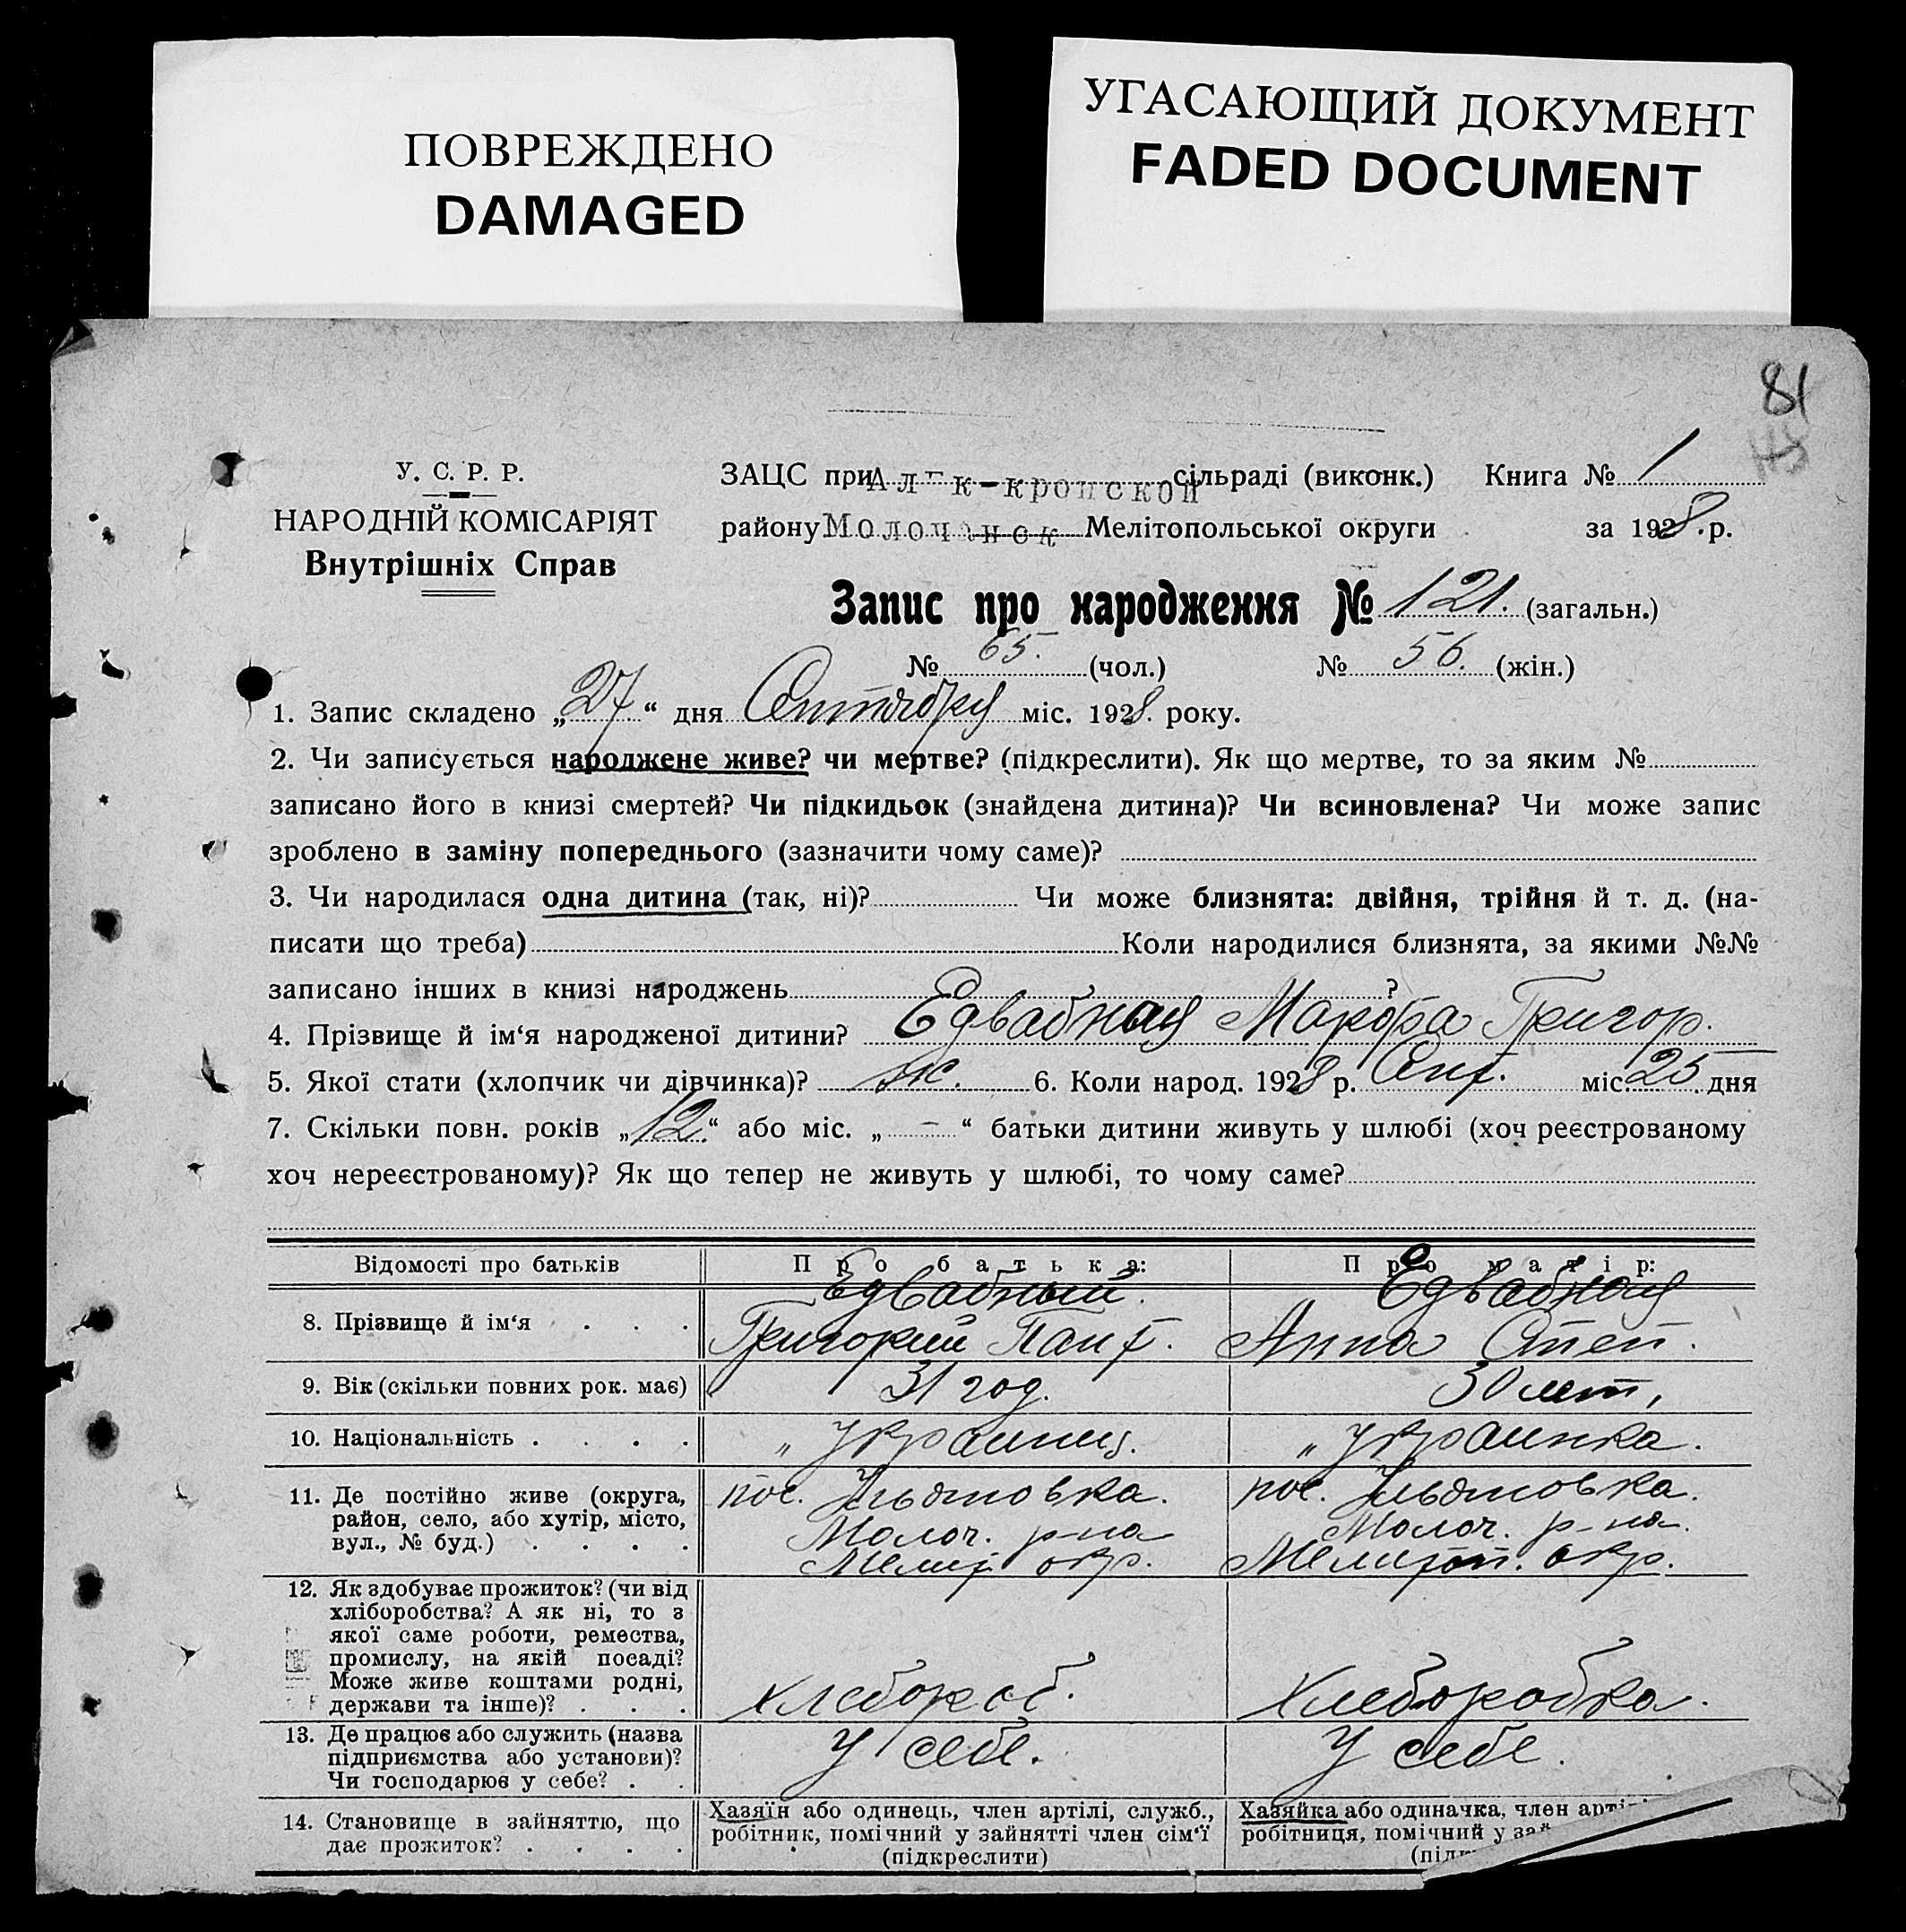 ПОВРЕЖДЕНО
DAMAGED
УГАСАЮЩИЙ ДОКУМЕНТ
FADED DOCUMENT
81
У. С. Р. Р.
НАРОДНІЙ КОМІСАРІЯТ
Внутрішніх Справ
ЗАЦС при сільраді (виконк.) Книга № 1
району Молочанск Мелітопольської округи за 1928 р.
Запис про народження № 121. (загальн.)
№ 65. (чол.) № 56. (жін.)
1. Запис складено „27“ дня Сентября міс. 1928. року.
2. Чи записується народжене живе? чи мертве? (підкреслити). Як що мертве, то за яким №
записано його в книзі смертей? Чи підкидьок (знайдена дитина)? Чи всиновлена? Чи може запис
зроблено в заміну попереднього (зазначити чому саме)?
3. Чи народилася одна дитина (так, ні)? Чи може близнята: двійня, трійня й т. д. (на-
писати що треба) Коли народилися близнята, за якими №№
записано інших в книзі народжень ?
4. Прізвище й ім‘я народженої дитини? Едвабная Марфа Григор.
5. Якої стати (хлопчик чи дівчинка)? ж. 6. Коли народ. 1928 р. Сент. міс. 25 дня
7. Скільки повн. років „12“ або міс. „ – “ батьки дитини живуть у шлюбі (хоч реєстрованому
хоч нереєстрованому)? Як що тепер не живуть у шлюбі, то чому саме?
Відомості про батьків Про батька: Про матір:
Едвабный. Едвабная
8. Прізвище й ім‘я . . . Григорий Пант. Анна Степ.
9. Вік (скільки повних рок. має) 31 год. 30 лет,
10. Національність . . . . „ Украинец. „ Украинка.
11. Де постійно живе (округа, пос. Ульяновка. пос. Ульяновка.
район, село, або хутір, місто, Молоч. р-на Молоч. р-на.
вул., № буд.) . . . . Мелит. окр. Мелитоп. окр.
12. Як здобуває прожиток? (чи від
хліборобства? А як ні, то з
якої саме роботи, ремества,
промислу, на якій посаді?
Може живе коштами родні,
держави та інше)? . . . Хлебороб. Хлеборобка.
13. Де працює або служить (назва У себе. У себе.
підприємства або установи)?
Чи господарює у себе? . .
14. Становище в зайняттю, що Хазяїн або одинець, член артілі, служб., Хазяйка або одиначка, член
дає прожиток? . . . . робітник, помічний у зайнятті член сім‘ї робітниця, помічний у
(підкреслити)